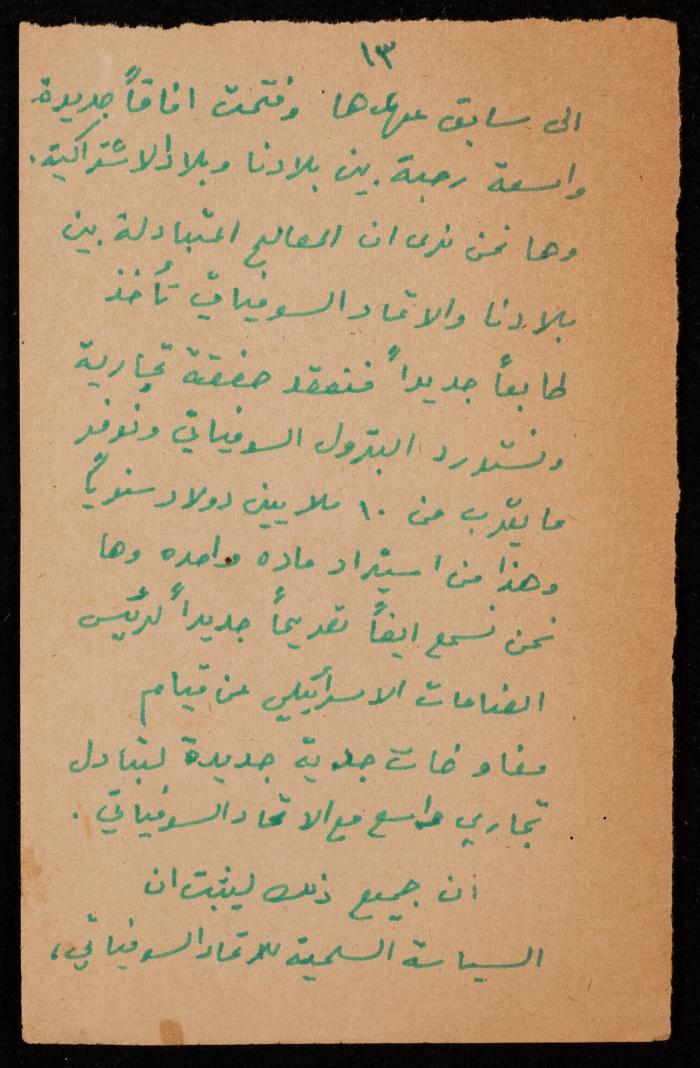 ١٣
الى سابق عهدها وفتحت افاقاً جديدة
واسعة رحبة بين بلادنا وبلاد الاشتراكية.
وها نحن نرى ان المصالح المتبادلة بين
بلادنا والاتحاد السوفياتي تأخذ
طابعاً جديداً فنعقد صفقة تجارية
ونستورد البترول السوفياتي ونوفر
ما يقرب من ١٠ ملايين دولار سنوياً
وهذا من استيراد مادة واحده وها
نحن نسمع ايضاً تصريحاً جديداً لرئيس
الصناعات الاسرائيلي عن قيام
مفاوضات جدية جديدة لتبادل
تجاري واسع مع الاتحاد السوفياتي.
ان جميع ذلك ليثبت ان
السياسة السلمية للاتحاد السوفياتي،